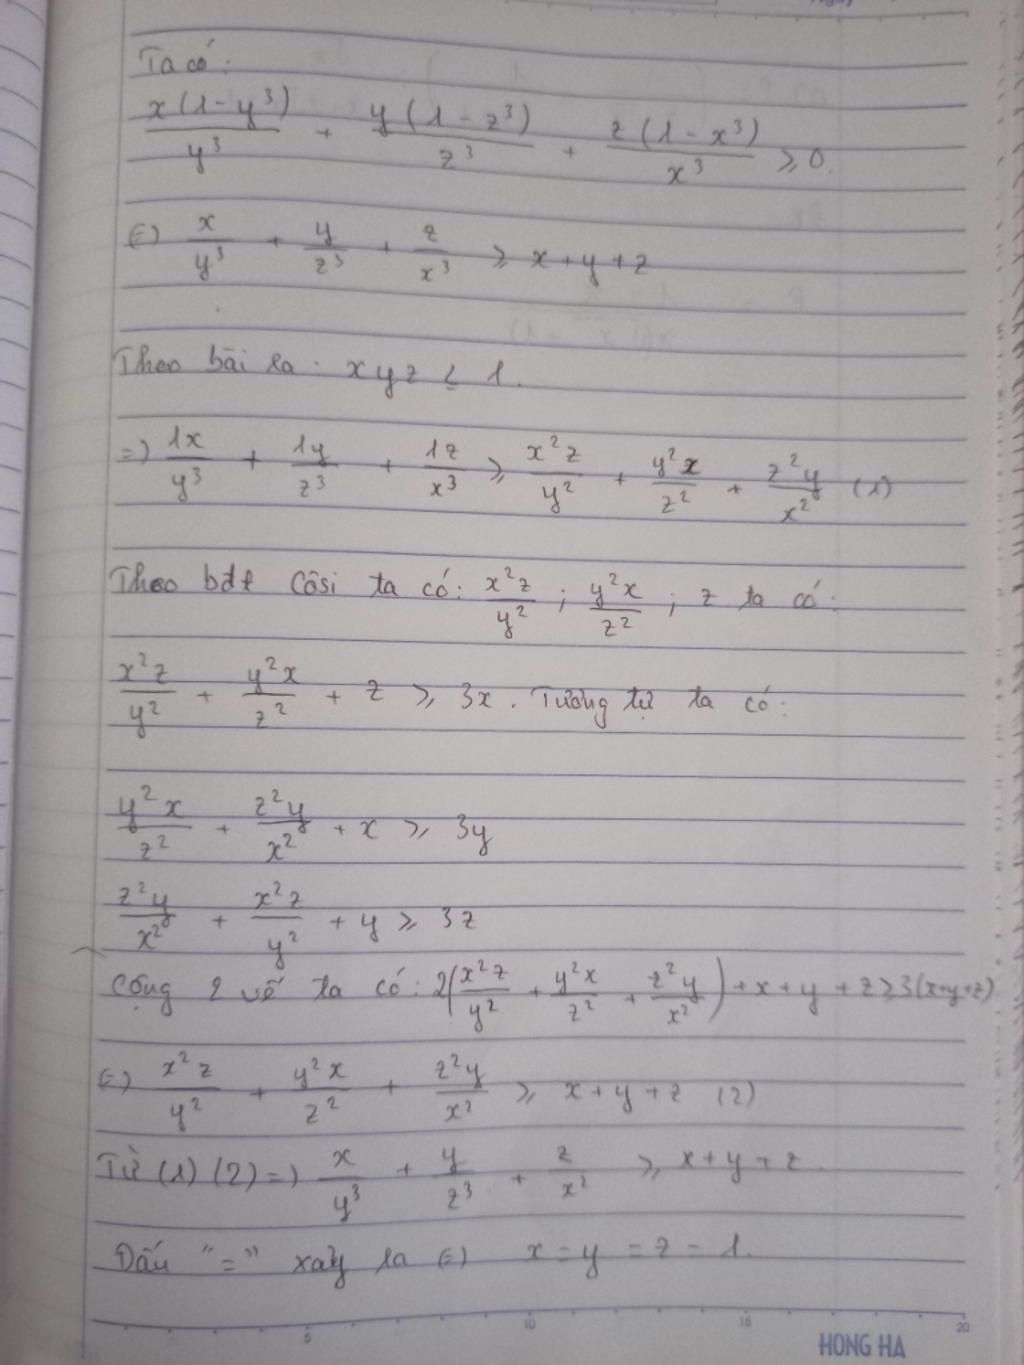 Ta có:
x(1-y³)/y³ + y(1-z³)/z³ + z(1-x³)/x³ ⩾ 0.
(=) x/y³ + y/z³ + z/x³ ⩾ x+y+z
Theo bài ra. xyz ≤ 1.
=) 1x/y³ + 1y/z³ + 1z/x³ ⩾ x²z/y² + y²x/z² + z²y/x² (1)
Theo bđt Côsi ta có: x²z/y² ; y²x/z² ; z ta có:
x²z/y² + y²x/z² + z ⩾ 3x. Tương tự ta có:
y²x/z² + z²y/x² + x ⩾ 3y
z²y/x² + x²z/y² + y ⩾ 3z
Cộng 2 vế ta có: 2(x²z/y² + y²x/z² + z²y/x²) + x + y + z ⩾ 3(x+y+z)
(=) x²z/y² + y²x/z² + z²y/x² ⩾ x+y+z (2)
Từ (1) (2) =) x/y³ + y/z³ + z/x² ⩾ x+y+z.
Dấu "=" xảy ra (=) x=y=z=1.
5 10 15 20
HONG HA